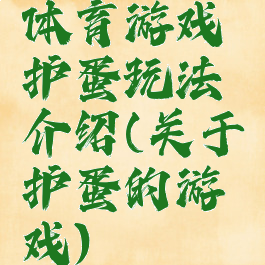 体育游戏
护蛋玩法
介绍(关于
护蛋的游
戏)